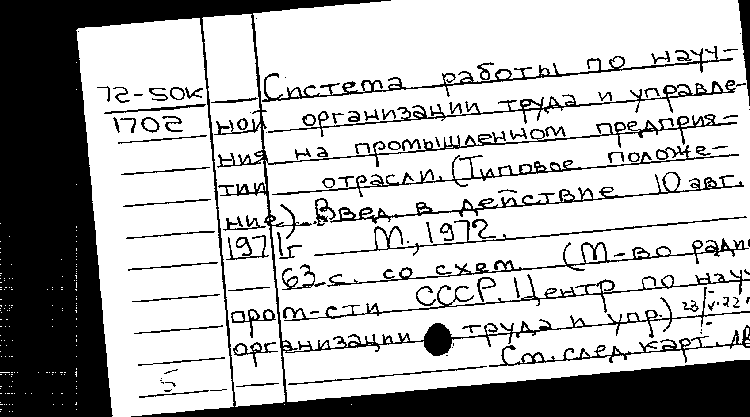 72-50К
1702
Система работы по науч-
ной организации труда и управле-
ния на промышленном предприя-
тии отрасли. (Типовое положе-
ние). Введ. в действие 10 авг.
1971г М., 1972.
63 с. со схем. (М-во радио
пром-сти СССР. Центр по науч
организации труда и упр.)
См. след. карт.
5